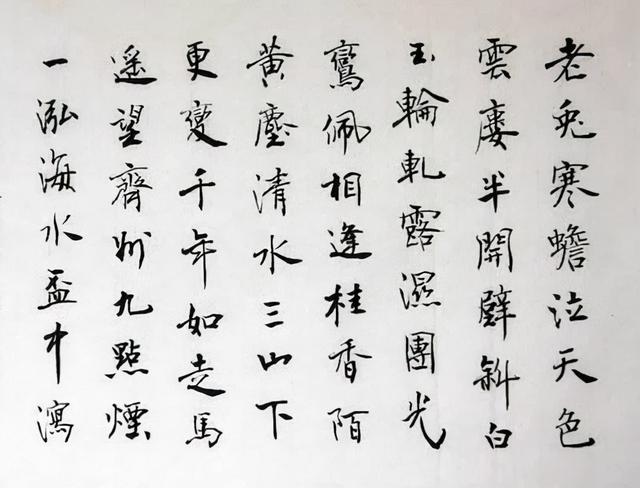 老兎寒蟾泣天色
雲廔半開壁斜白
玉輪軋露濕團光
鸞佩相逢桂香陌
黃塵清水三山下
更變千年如走馬
遥望齊州九點煙
一泓海水盃中瀉